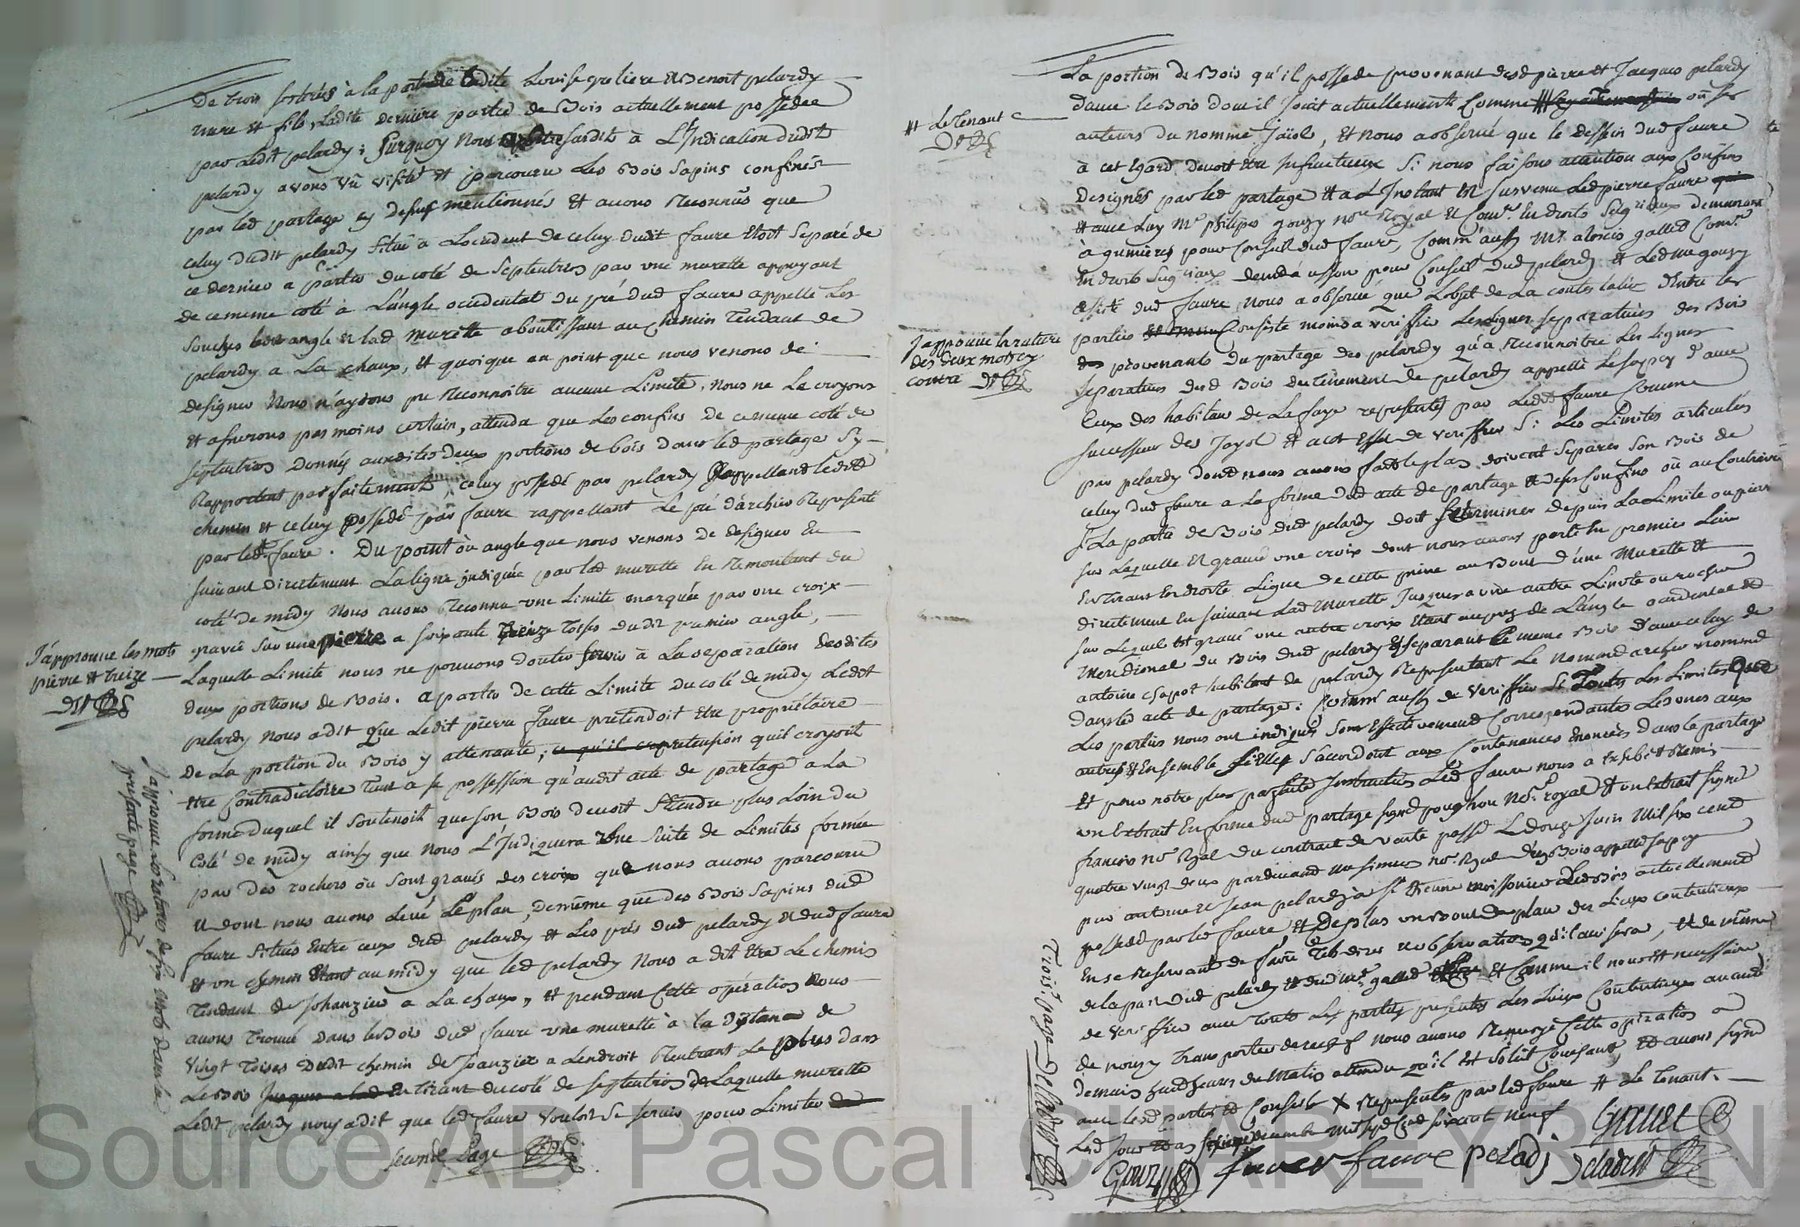 De trois sesterées à la portion de ladite Louise greliere et Benoit pelardy
mere et fils, Ladite derniere partie de Bois actuellement possedée
par Ledit pelardy; surquoy nous susdits à L'Indication dudit
pelardy avons vû visité et parcouru Les Bois sapins confinés
par led partage cy dessus mentionnés et avons Reconnüs que
celuy dudit pelardy situé à Loccident de celuy dudit faure etoit separé de
ce dernier à partir du coté de septentrion par une murette appuyant
de ce meme coté à L'angle occidental du pré dud faure appellé Les
souches angle et lad murette aboutissant au chemin Tendant de
pelardy a La chaux, et quoique au point que nous venons de
designer nous n'ayions pu Reconnoitre aucune Limite, nous ne Le croyons
et assurons pas moins certain, attendu que Les confins de ce meme coté de
septentrion Donnés auxdites deux portions de bois dans led partage s'y
Rapportent parfaitement, celuy possedé par pelardy Rappellant ledit
chemin et celuy possedé par faure rappellant Le pré d'archer Representé
par led faure. Du point ou angle que nous venons de designer en
suivant directement La ligne indiquée par lad murette En Remontant du
coté de midy nous avons Reconnu une Limite marquée par une croix
gravée sur une pierre a soixante treize toises dudit premier angle,
Laquelle Limite nous ne pouvons douter servir à La separation desdites
deux portions de Bois. a partir de cette Limite du coté de midy Ledit
pelardy nous a dit que Ledit pierre faure pretendoit etre proprietaire
De La portion du Bois y attenante; ce qu'il pretention qu'il croyoit
etre contradictoire tant a sa possession qu'audit acte de partage a la
forme duquel il soutenoit que son Bois devoit s'etendre plus Loin du
coté de midy ainsy que nous L'Indiquera une suite de Limites formée
par des rochers où sont gravés des croix que nous avons parcouru
et dont nous avons Levé Le plan, de meme que des Bois sapins dud
faure situés Entre ceux dud pelardy et Les prés dud pelardy et dud faure
et un chemin Etant au midy que led pelardy nous a dit etre Le chemin
Tendant de Johanziecq a La chaux, et pendant cette operation nous
avons trouvé dans le Bois dud faure une murette à la distance de
vingt toises dudit chemin de a Lendroit Rentrant Le plus dans
Le Bois tirant du coté de septentrion de Laquelle murette
Ledit pelardy nous a dit que led faure vouloit se servir pour Limites
seconde page
J'approuve les mots
pierre et treize
J'approuve La rature de six mots dans la
presente page
La portion de Bois qu'il possede provenant desd pierre et Jacques pelardy
dans le Bois dont il Jouit actuellement comme ou ses
auteurs du nommé Jaiol, et nous a observé que le dessein dud faure
à cet Egard devoit etre Infructueux si nous faisons attention aux confins
designés par led partage et a L'Instant est survenu Led pierre faure
et avec Luy Me philipes gouzy nore Royal et Commre En droits seigriaux demeurant
à gumieres pour Conseil dud faure, Comm'aussy Me gallet Commre
En droits seigriaux pour Conseil dud pelardy et Led me gouzy
assisté dud faure, nous a observé que L'objet de La contestation d'Entre les
parties consiste moins a veriffier Les Lignes separatrices des Bois
provenants du partage des pelardy qu'a Reconnoitre Les Lignes
separatrices dud Bois du tenement de pelardy appellé Le sapey d'avec
Ceux des habitans de La faye representés par Ledit faure Comme
successeur des Jayol et a cet Effet de veriffier si Les Limites articulées
par pelardy dont nous avons fait le plan doivent separer son Bois de
celuy dud faure a La forme dud acte de partage et de ses confins où au Contraire
si La partie de Bois dud pelardy doit se terminer depuis La Limite ou pierre
sur Laquelle Est gravée une croix dont nous avons parlé En premier Lieu
En tirant En droite Ligne de cette pierre au Bout d'une Murette et
directement en suivant Lad Murette Jusques a une autre Limite ou rocher
sur Lequel est gravé une autre croix Etant aupres de L'angle occidental et
Meridional du Bois dud pelardy et separant Le meme Bois d'avec celuy de
antoine chapot habitant de pelardy Representant Le nommé archer nommé
dans led acte de partage; Comm'aussy de veriffier si Toutes Les Limites que
Les parties nous ont indiqués sont effectivement Correspondantes Les unes aux
autres et Ensemble si Elles s'accordent aux contenances enoncées dans le partage
et pour notre plus parfaitte Instruction Led faure nous a Exhibé et Remis
un Extrait En forme dud partage signé poughon nore royal et un Extrait signé
francois nore Royal du contrat de vente passé Le douze Juin Mil six cent
quatre vingt deux pardevant nore Royal d'un Bois appellé sapey
par antoine et Jean pelardy à st Etienne moissonier Led Bois actuellement
possedé par led faure et De plus un Bout de plan des Lieux contentieux
En se Reservant de faire Tels dires et observations qu'il avisera, et de meme
de la part dud pelardy et dud me gallet et Comme il nous est necessaire
de veriffier avec toutes Les parties presentes Les Lieux Contentieux avant
de nous y transporter derechef nous avons Renvoyé Cette operation a
demain huit heures du Matin attendu qu'il est soleil couchant et avons signé
avec Lesd parties et Conseils X Representés par led faure # Le tenant.
Led Jour decembre mil sept cent soixante neuf
Gallet
Gouzy faure peladj Deladret
# Le tenant
J'approuve la rature
des deux mots cy
contre
Trois. page Deladret
Source AD Pascal CHAREYRON